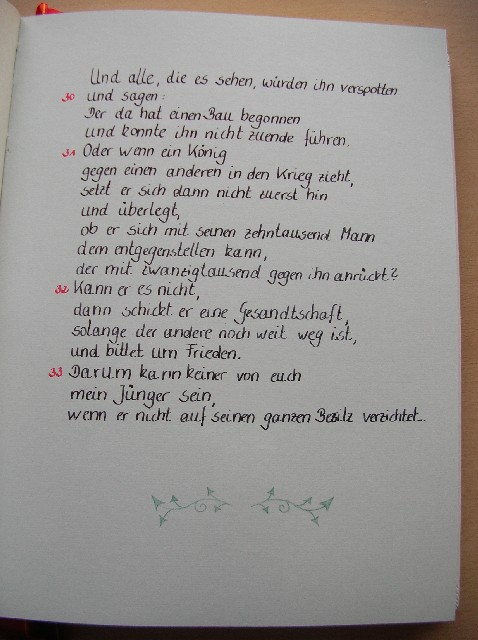 Und alle, die es sehen, würden ihn verspotten
30 und sagen:
Der da hat einen Bau begonnen
und konnte ihn nicht zuende führen.
31 Oder wenn ein König
gegen einen anderen in den Krieg zieht,
setzt er sich dann nicht zuerst hin
und überlegt,
ob er sich mit seinen zehntausend Mann
dem entgegenstellen kann,
der mit zwanzigtausend gegen ihn anrückt?
32 Kann er es nicht,
dann schickt er eine Gesandtschaft,
solange der andere noch weit weg ist,
und bittet um Frieden.
33 Darum kann keiner von euch
mein Jünger sein,
wenn er nicht auf seinen ganzen Besitz verzichtet...